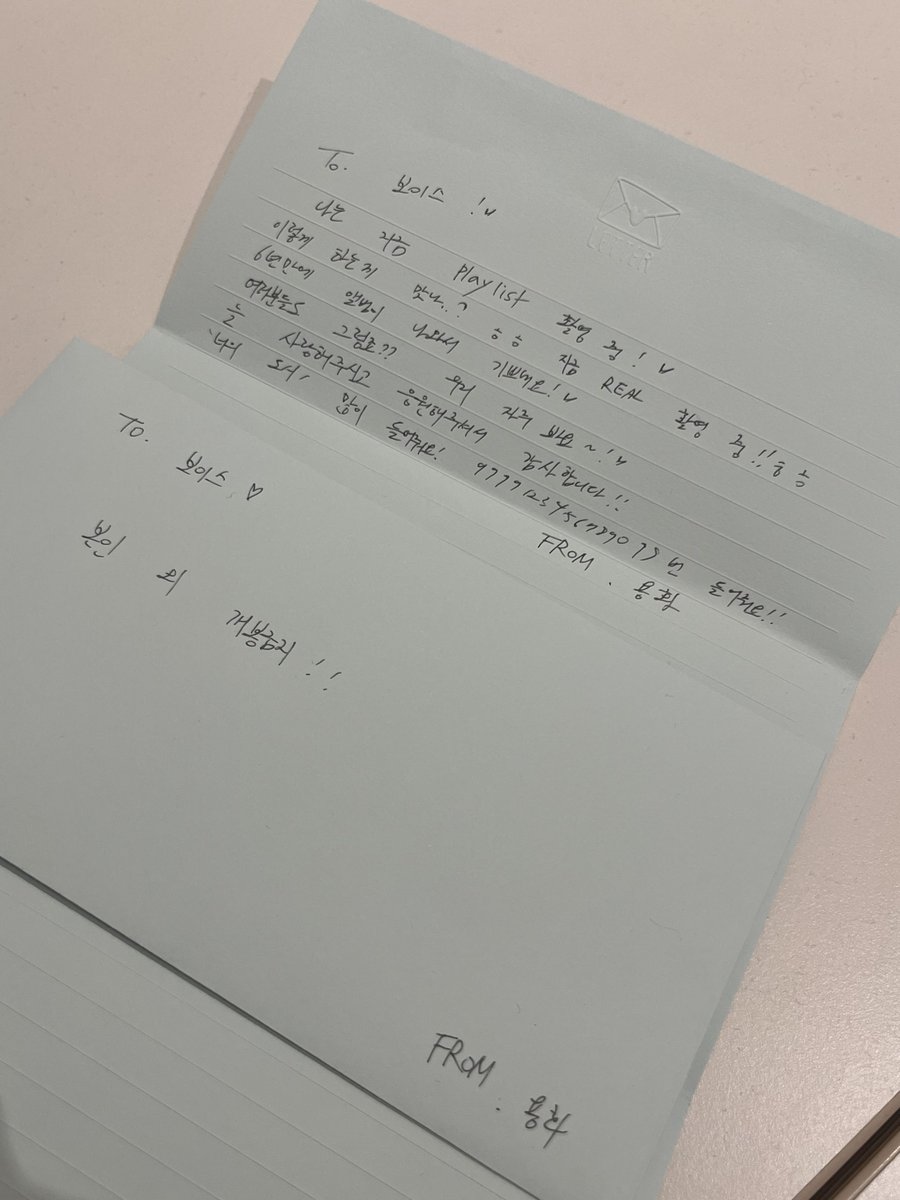 To. 보이스!
LETTER
나는 지금 playlist 촬영 중!
이렇게 하는지 맞나..? ㅎㅎ 지금 REAL 촬영 중!! ㅎㅎ
6년만에 앨범이 나와서 기쁘네요!
여러분들도 그렇죠?? 우리 자주 봐요~!
늘 사랑해주시고 응원해주셔서 감사합니다!!
'너의 도시' 많이 들어줘요! 번 들어줘요!!
FROM. 용화
To. 보이스 ♡
본인 외 개봉금지!!
FROM. 용화